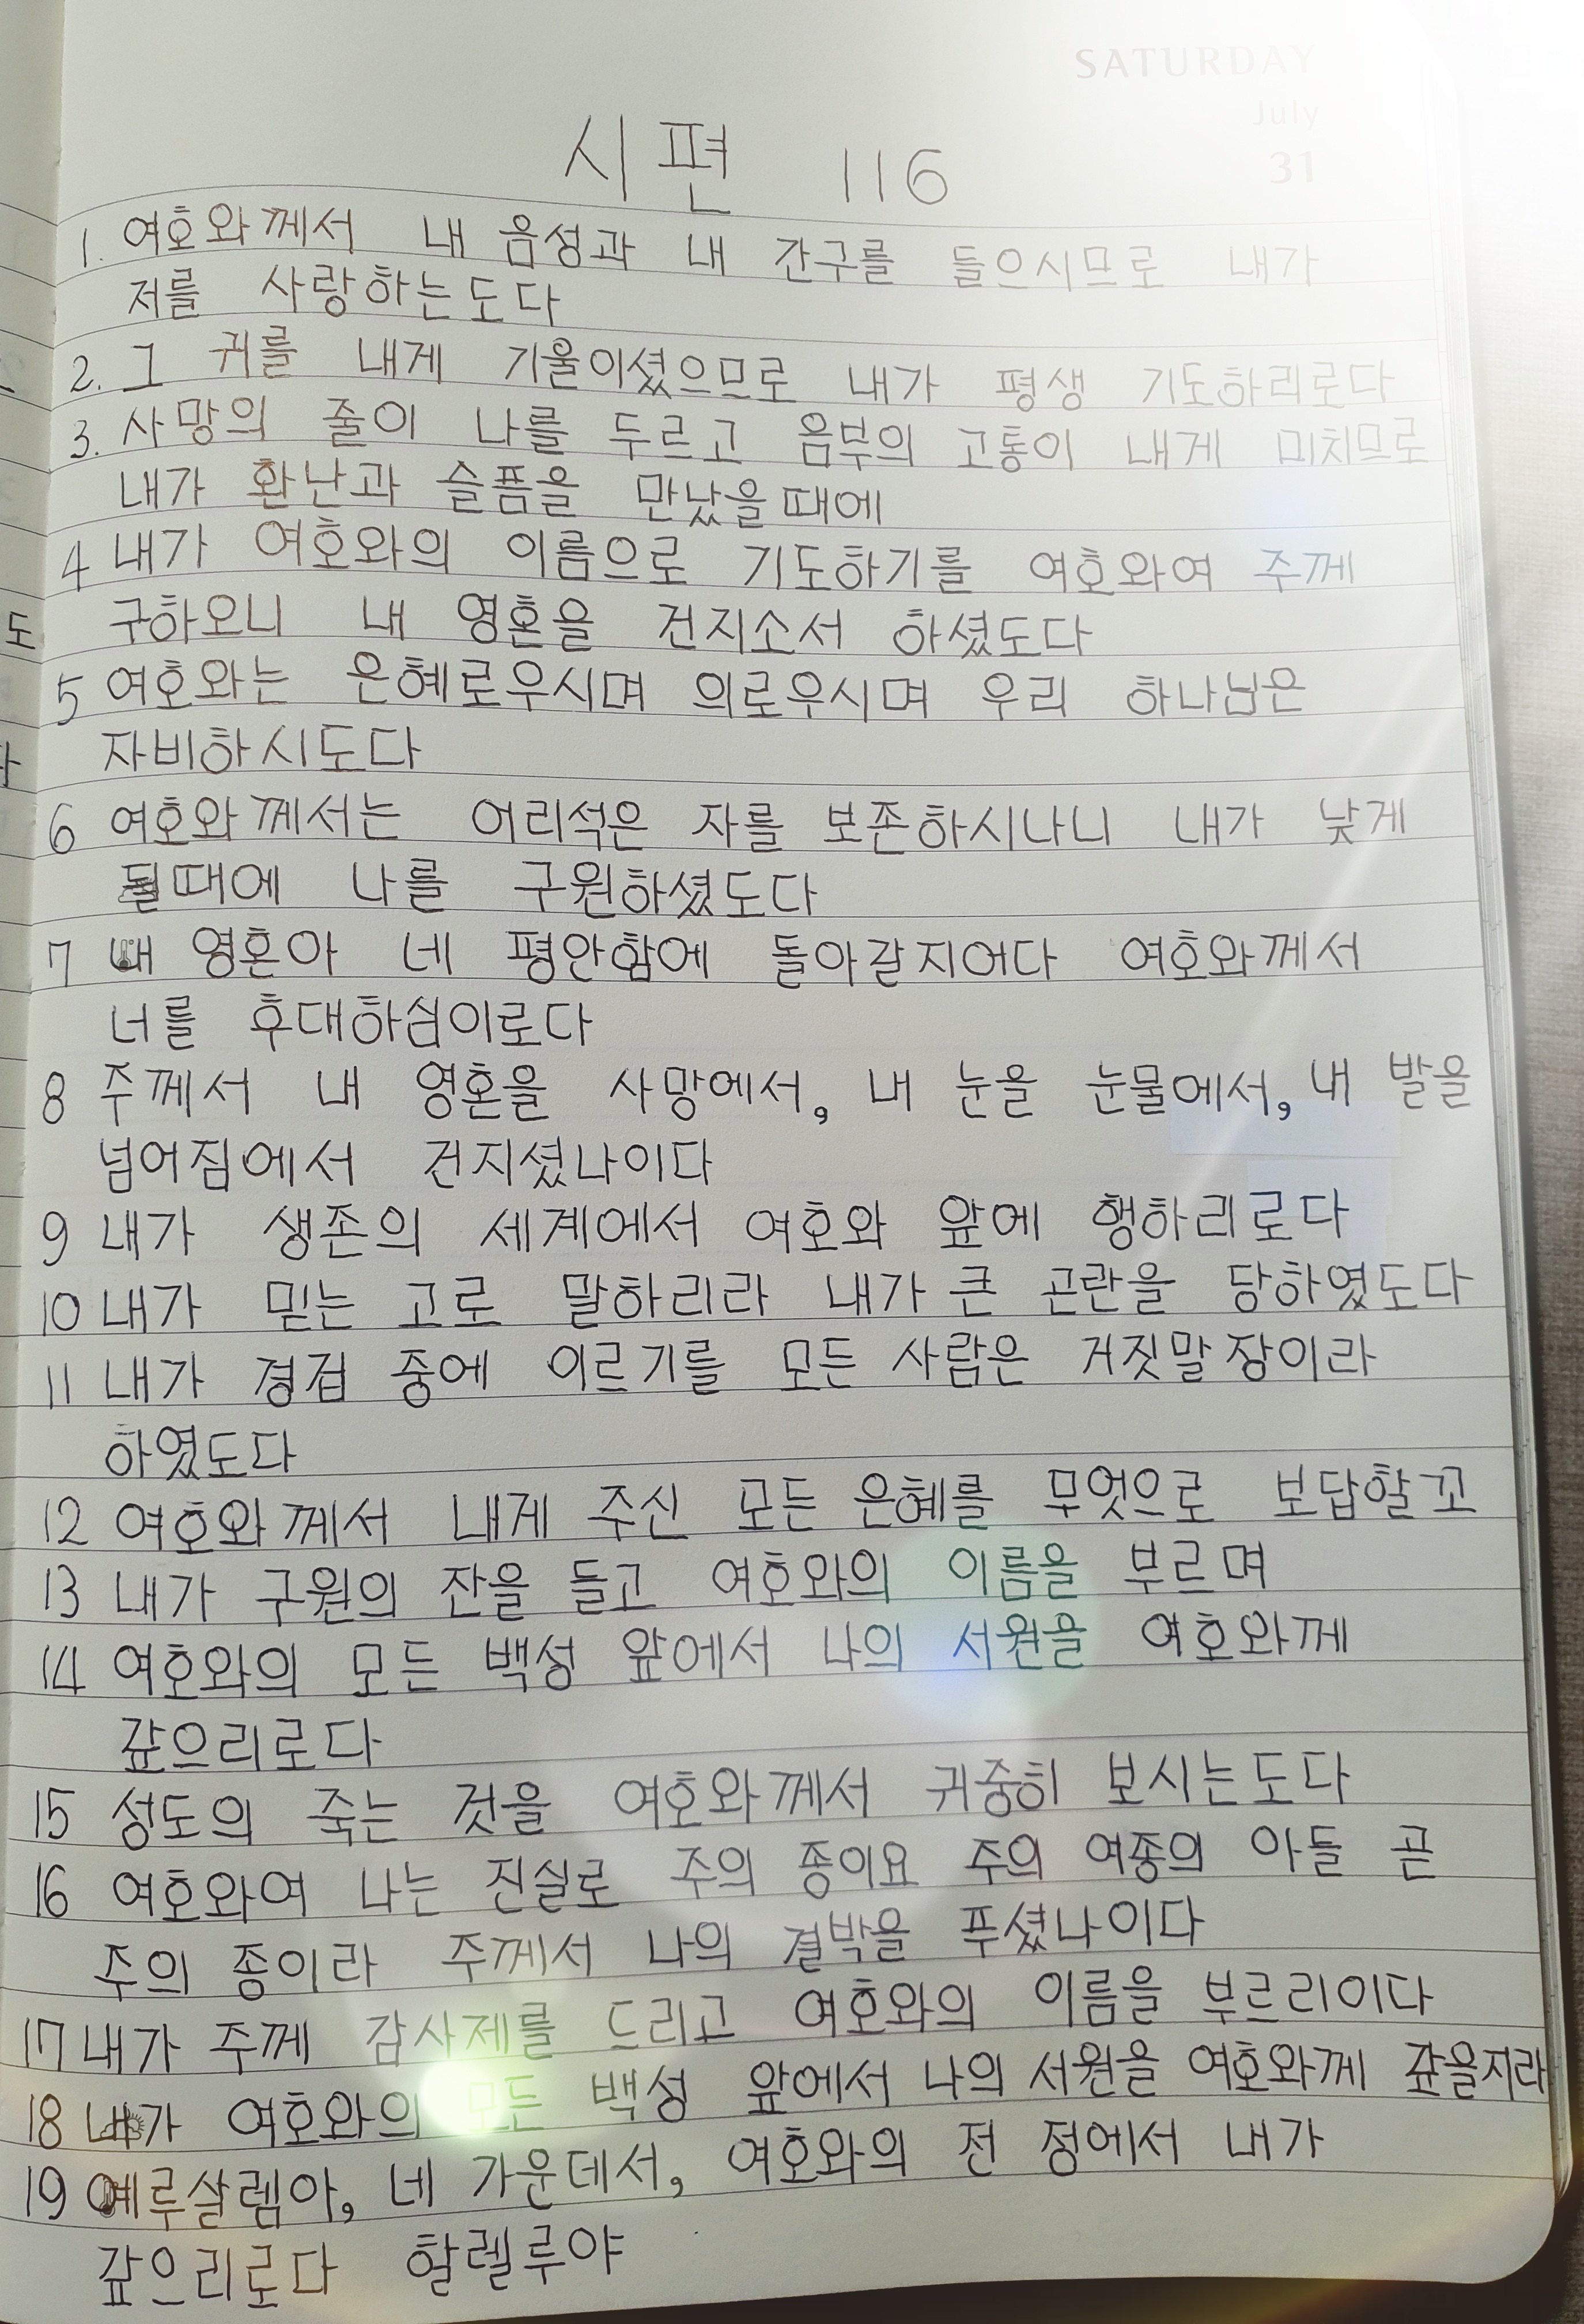 SATURDAY
July
31
시편 116
1. 여호와께서 내 음성과 내 간구를 들으시므로 내가
저를 사랑하는도다
2. 그 귀를 내게 기울이셨으므로 내가 평생 기도하리로다
3. 사망의 줄이 나를 두르고 음부의 고통이 내게 미치므로
내가 환난과 슬픔을 만났을때에
4 내가 여호와의 이름으로 기도하기를 여호와여 주께
구하오니 내 영혼을 건지소서 하셨도다
5 여호와는 은혜로우시며 의로우시며 우리 하나님은
자비하시도다
6 여호와께서는 어리석은 자를 보존하시나니 내가 낮게
될때에 나를 구원하셨도다
7 내 영혼아 네 평안함에 돌아갈지어다 여호와께서
너를 후대하심이로다
8 주께서 내 영혼을 사망에서, 내 눈을 눈물에서, 내 발을
넘어짐에서 건지셨나이다
9 내가 생존의 세계에서 여호와 앞에 행하리로다
10 내가 믿는 고로 말하리라 내가 큰 곤란을 당하였도다
11 내가 경겁 중에 이르기를 모든 사람은 거짓말장이라
하였도다
12 여호와께서 내게 주신 모든 은혜를 무엇으로 보답할꼬
13 내가 구원의 잔을 들고 여호와의 이름을 부르며
14 여호와의 모든 백성 앞에서 나의 서원을 여호와께
갚으리로다
15 성도의 죽는 것을 여호와께서 귀중히 보시는도다
16 여호와여 나는 진실로 주의 종이요 주의 여종의 아들 곧
주의 종이라 주께서 나의 결박을 푸셨나이다
17 내가 주께 감사제를 드리고 여호와의 이름을 부르리이다
18 내가 여호와의 모든 백성 앞에서 나의 서원을 여호와께 갚을지라
19 예루살렘아, 네 가운데서, 여호와의 전 정에서 내가
갚으리로다 할렐루야